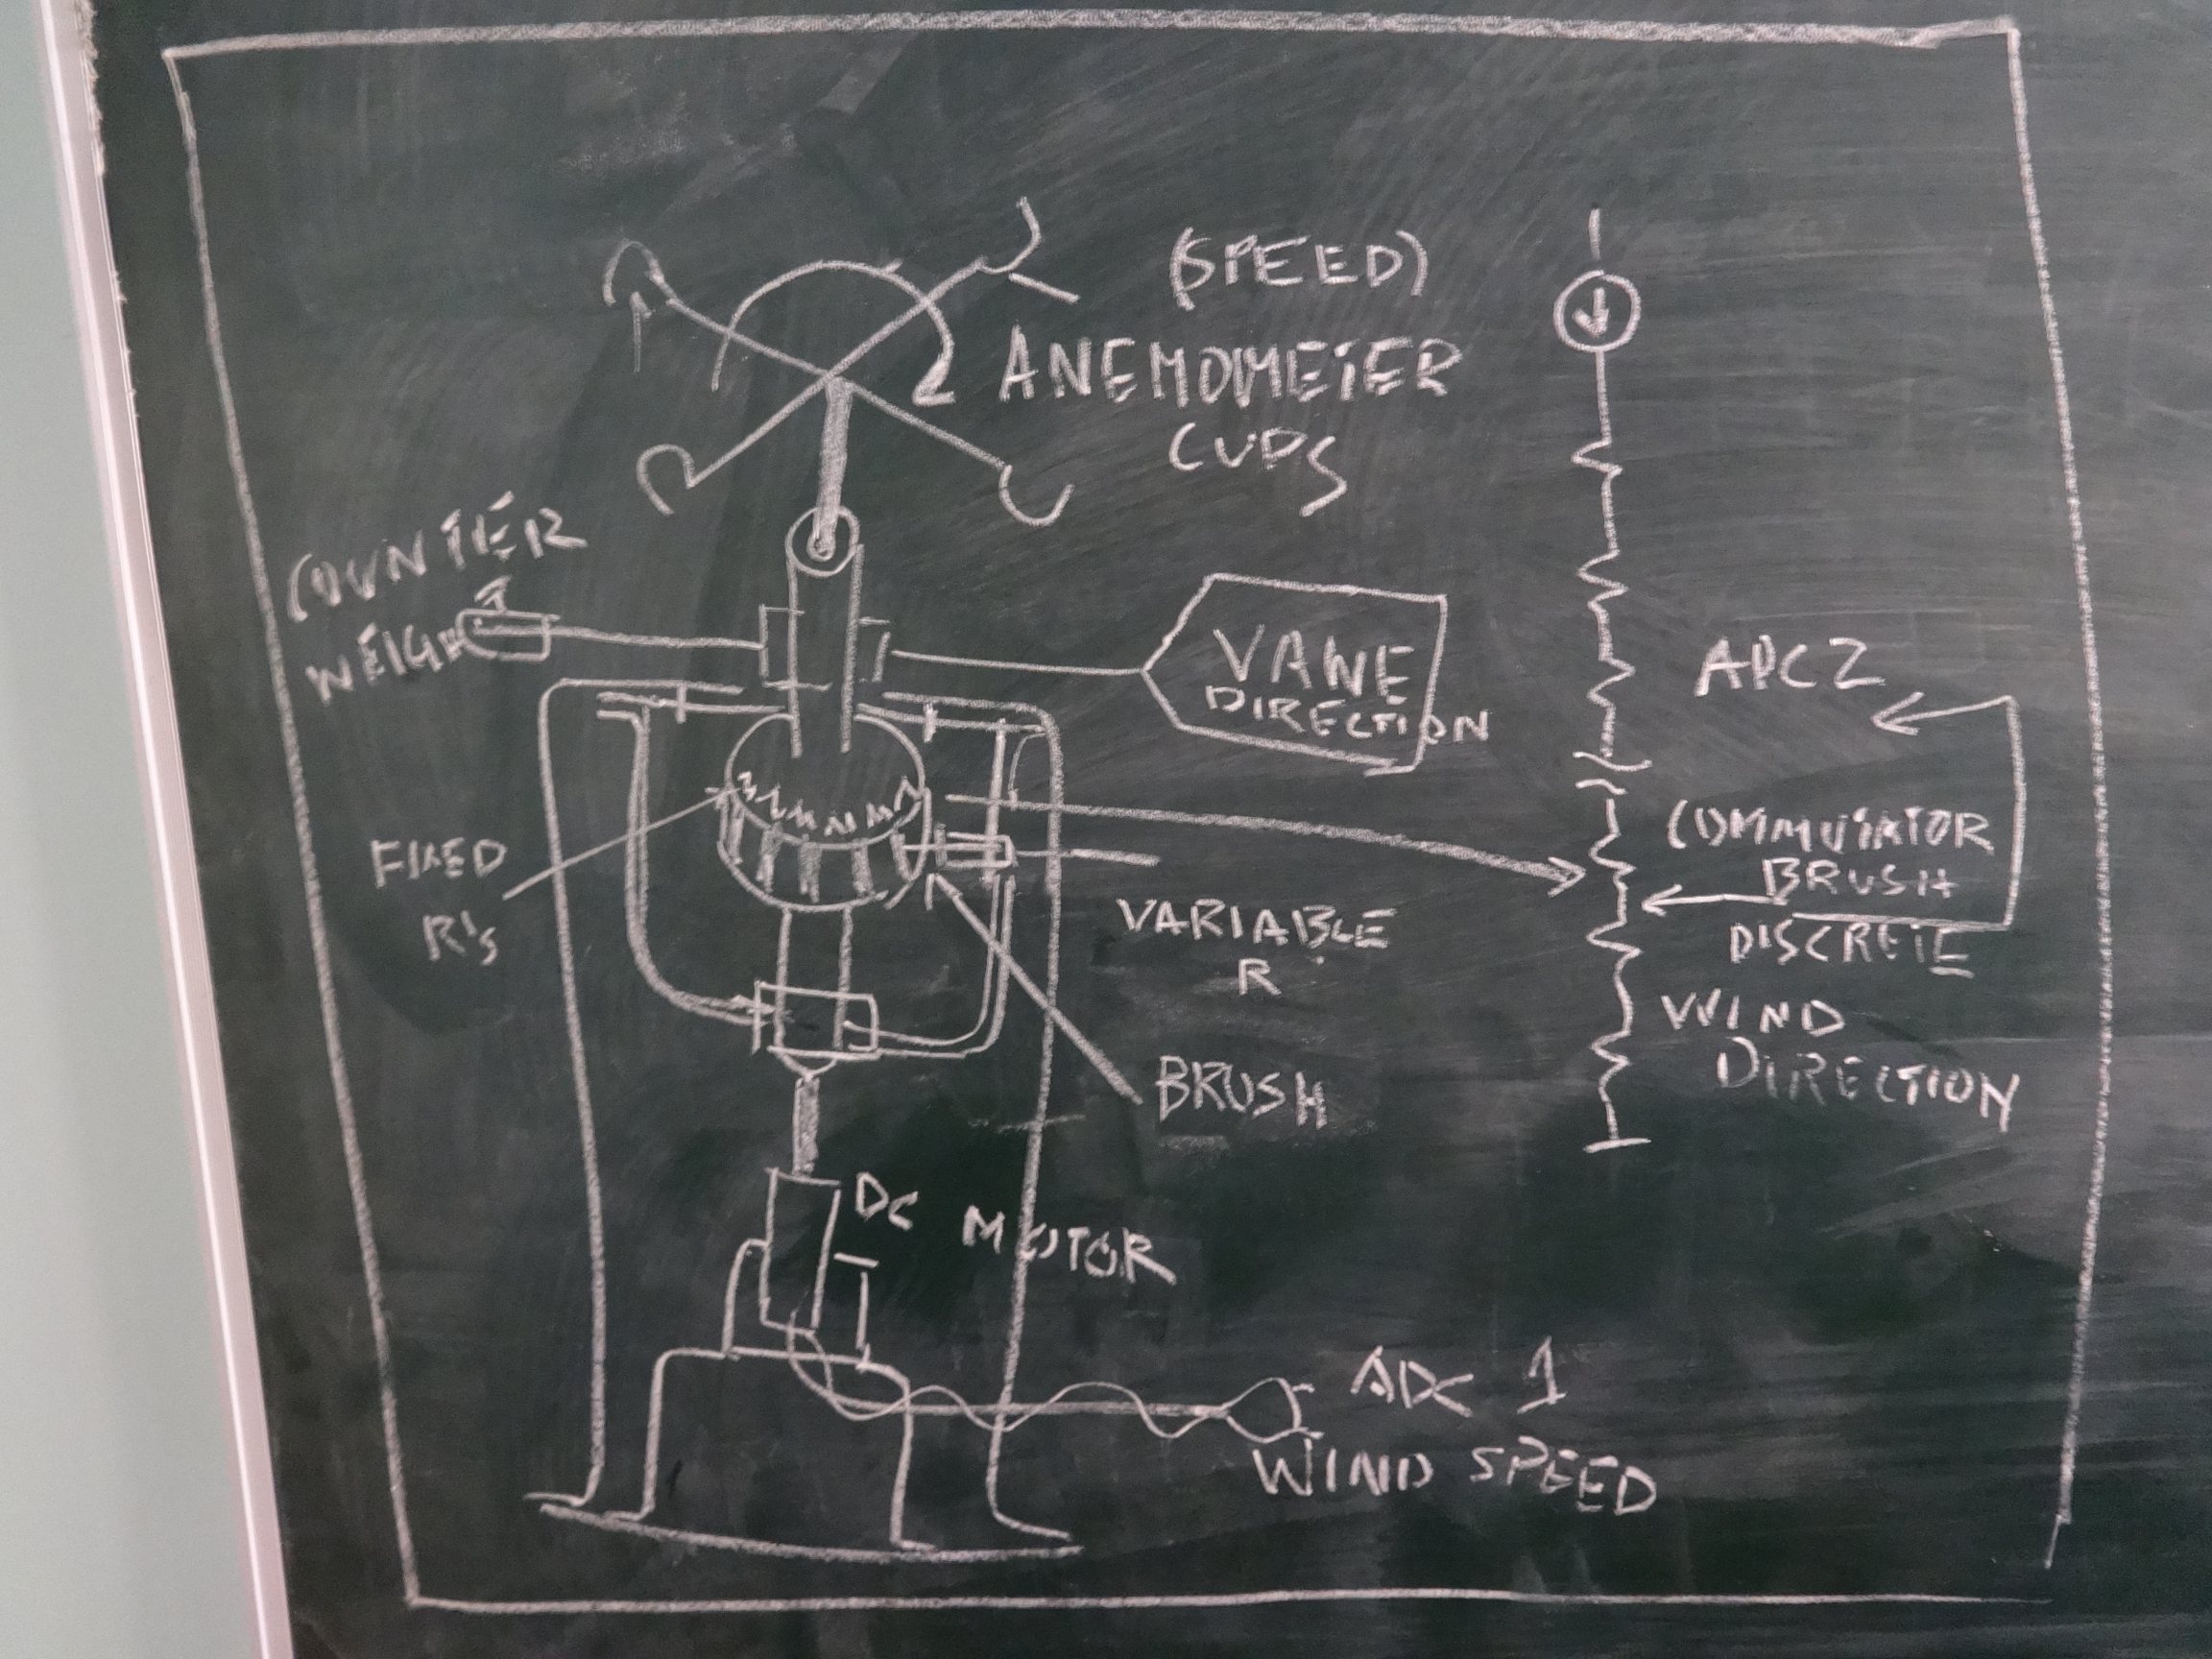 (SPEED)
ANEMOMETER
CUPS
COUNTER
WEIGHT
VANE
DIRECTION
ADC 2
FIXED
R's
COMMUTATOR
BRUSH
DISCRETE
VARIABLE
R
WIND
DIRECTION
BRUSH
DC MOTOR
ADC 1
WIND SPEED